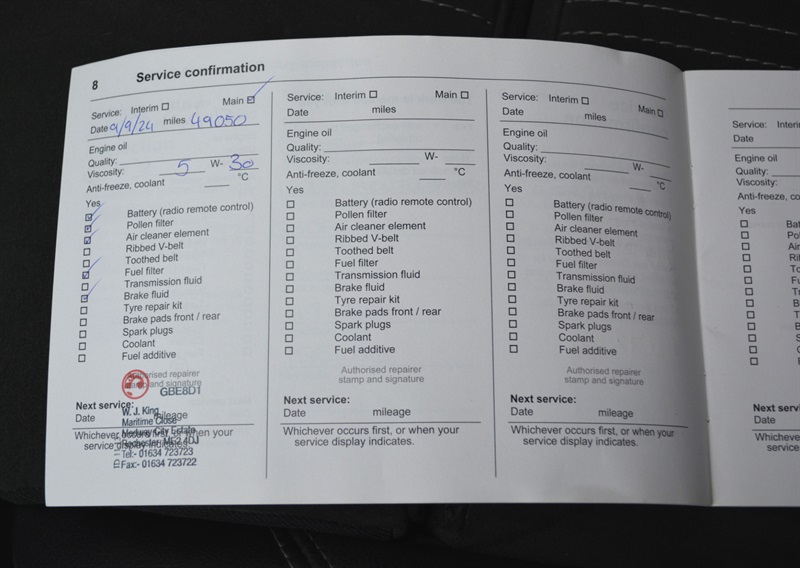 8 Service confirmation
Service: Interim Main
Date 9/9/24 miles 49050
Engine oil
Quality:
Viscosity: 5 W- 30
Anti-freeze, coolant °C
Yes
Battery (radio remote control)
Pollen filter
Air cleaner element
Ribbed V-belt
Toothed belt
Fuel filter
Transmission fluid
Brake fluid
Tyre repair kit
Brake pads front / rear
Spark plugs
Coolant
Fuel additive
Authorised repairer
stamp and signature
GBE8D1
Next service:
Date mileage
Whichever occurs first, or when your
service display indicates.
W. J. King
Maritime Close
Medway City Estate
Rochester ME2 4DJ
Tel:- 01634 723723
Fax:- 01634 723722
Service: Interim Main
Date miles
Engine oil
Quality:
Viscosity: W-
Anti-freeze, coolant °C
Yes
Battery (radio remote control)
Pollen filter
Air cleaner element
Ribbed V-belt
Toothed belt
Fuel filter
Transmission fluid
Brake fluid
Tyre repair kit
Brake pads front / rear
Spark plugs
Coolant
Fuel additive
Authorised repairer
stamp and signature
Next service:
Date mileage
Whichever occurs first, or when your
service display indicates.
Service: Interim Main
Date miles
Engine oil
Quality:
Viscosity: W-
Anti-freeze, coolant °C
Yes
Battery (radio remote control)
Pollen filter
Air cleaner element
Ribbed V-belt
Toothed belt
Fuel filter
Transmission fluid
Brake fluid
Tyre repair kit
Brake pads front / rear
Spark plugs
Coolant
Fuel additive
Authorised repairer
stamp and signature
Next service:
Date mileage
Whichever occurs first, or when your
service display indicates.
Service: Interi
Date
Engine oil
Quality:
Viscosity:
Anti-freeze, co
Yes
Bat
Pol
Air
Ri
To
Fu
Tr
Br
Ty
Br
Sp
Co
Fu
Next servi
Date
Whicheve
service